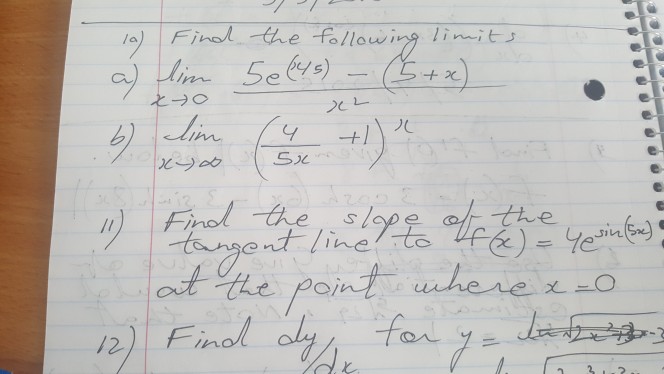 10) Find the following limits
a) lim x→0 5e^(x/5) − (5+x) / x²
b) lim x→∞ (4/5x + 1)^x
11) Find the slope of the
tangent line to f(x) = 4e^sin(5x)
at the point where x = 0
12) Find dy/dx for y =